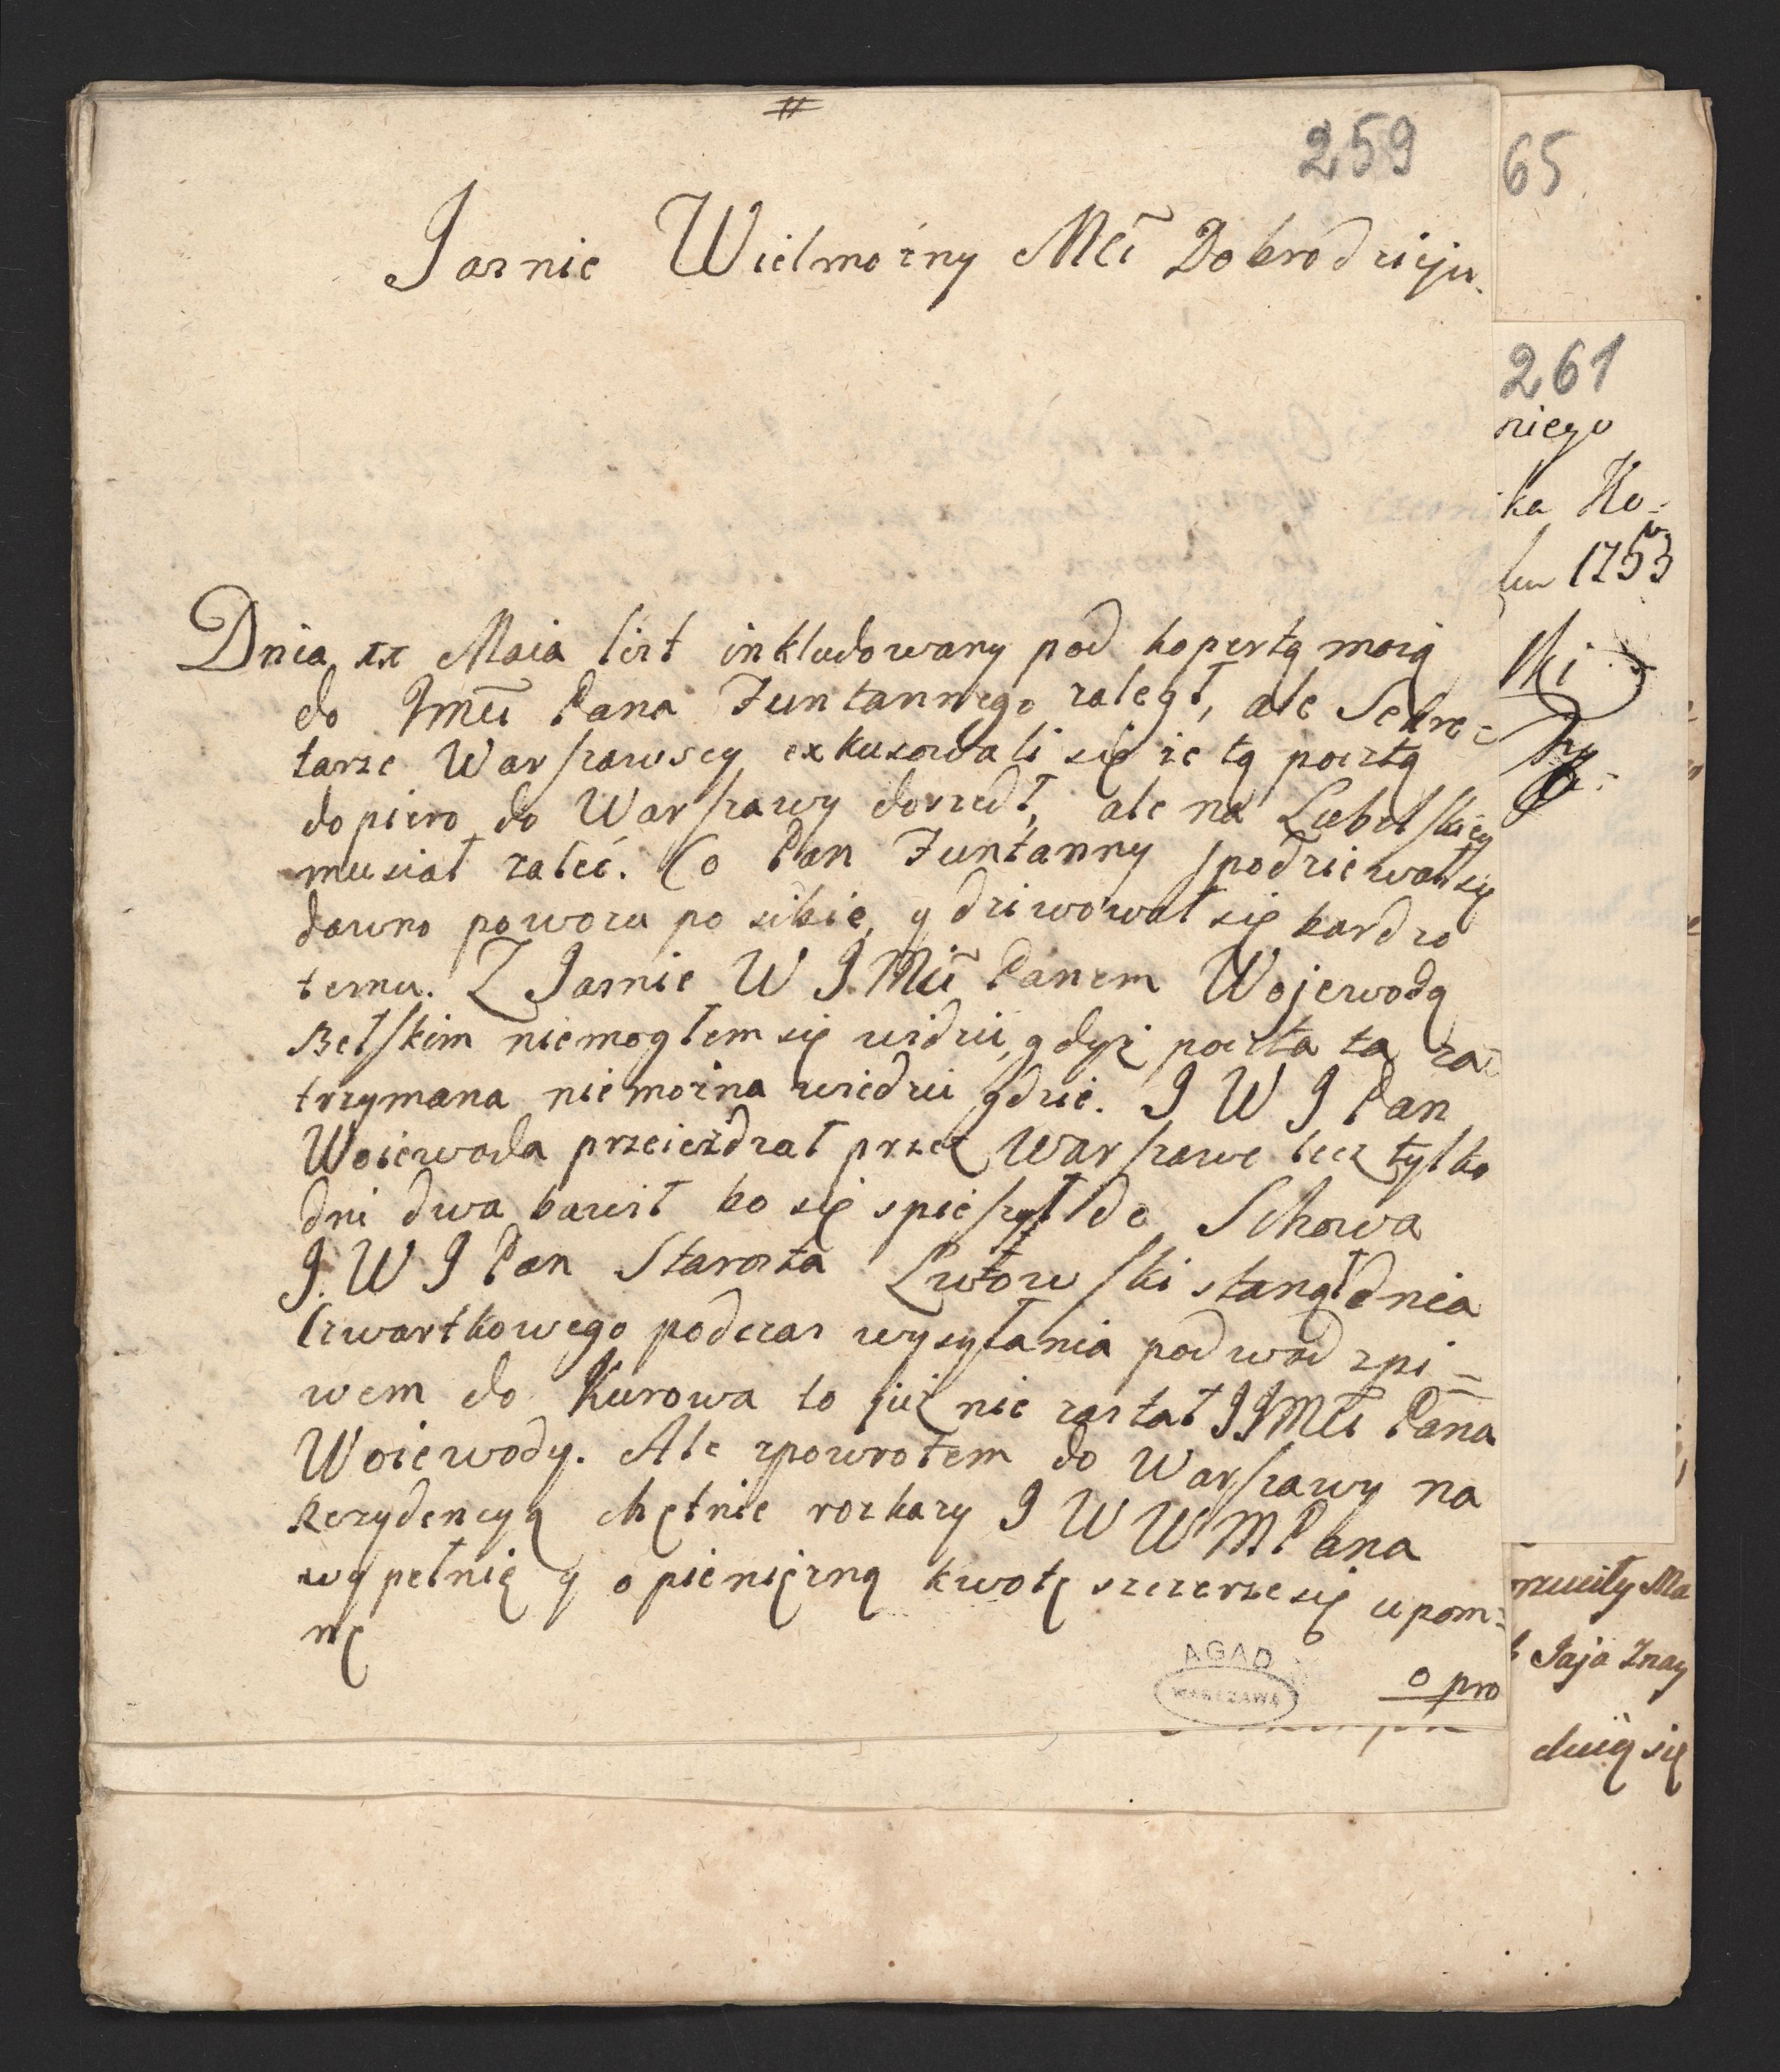 #
259
Jasnie Wielmożny Mći Dobrodzieju.
Dnia xx Maia list inkludowany pod kopertą moią
do Jmći Pana Funtannego zaległ, ale Sekre=
tarze Warszawscy exkuzowali się że tą pocztą
dopiero do Warszawy doszedł, ale na Lubelskiey
musiał zaledz. Co Pan Funtanny spodziewał się
dawno powozu po siebie, y dziwował się bardzo
temu. Z Jasnie W J Mći Panem Wojewodą
Bełskim niemogłem się widzić, gdyż poczta ta za
trzymana niemożna wiedzić gdzie. J W J Pan
Woiewoda przeieżdzał przez Warszawe lecz tylko
dni dwa bawił bo się spieszył do Schowa
J. W J Pan Starosta Lwowski stanął dnia
Czwartkowego podczas wysyłania podwod zpi=
wem do Kurowa to już nie zastał JJMći Pana
Woiewody. Ale zpowrotem do Warszawy na
Rezydencyą chętnie rozkazy J W W M Pana
wypełnię y o pieniężną kwotę szczerze się upom=
nę
AGAD
WARSZAWA
o pro
65
261
niego
ka Ko=
1753
ski
Jaja Znay
duią się